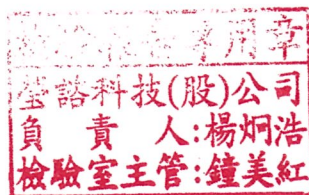 用章
瑩諮科技(股)公司
負責人:楊炯浩
檢驗室主管:鐘美紅